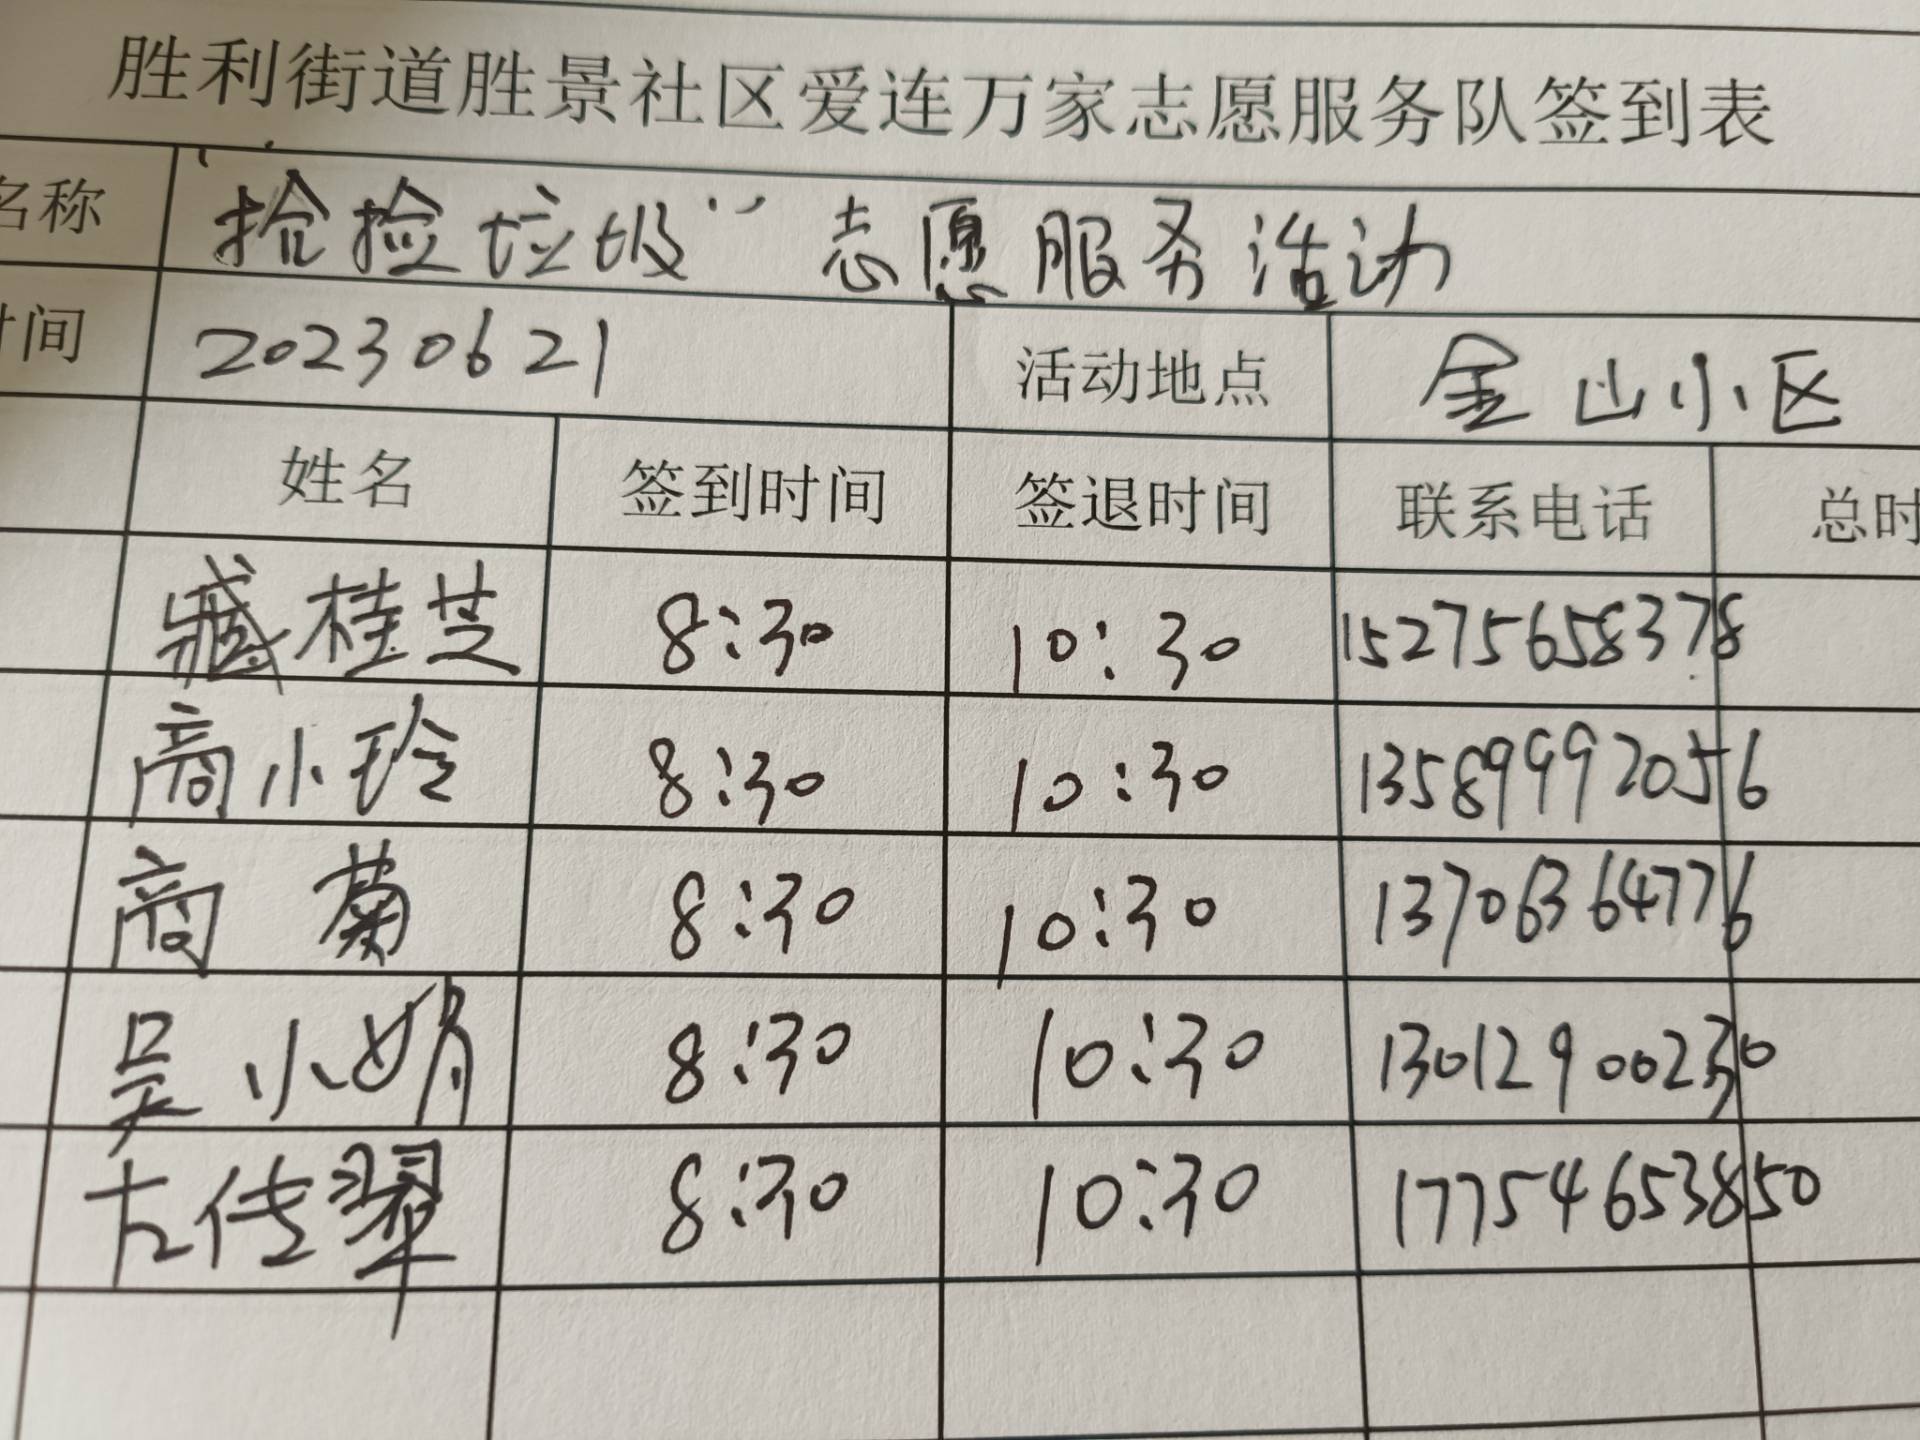 胜利街道胜景社区爱连万家志愿服务队签到表
名称 "抢捡垃圾" 志愿服务活动
时间 20230621 活动地点 金山小区
姓名 签到时间 签退时间 联系电话 总时
臧桂芝 8:30 10:30 15275658378
商小玲 8:30 10:30 13589992056
商菊 8:30 10:30 13706364776
吴小娟 8:30 10:30 13012900230
古传翠 8:30 10:30 17754653850